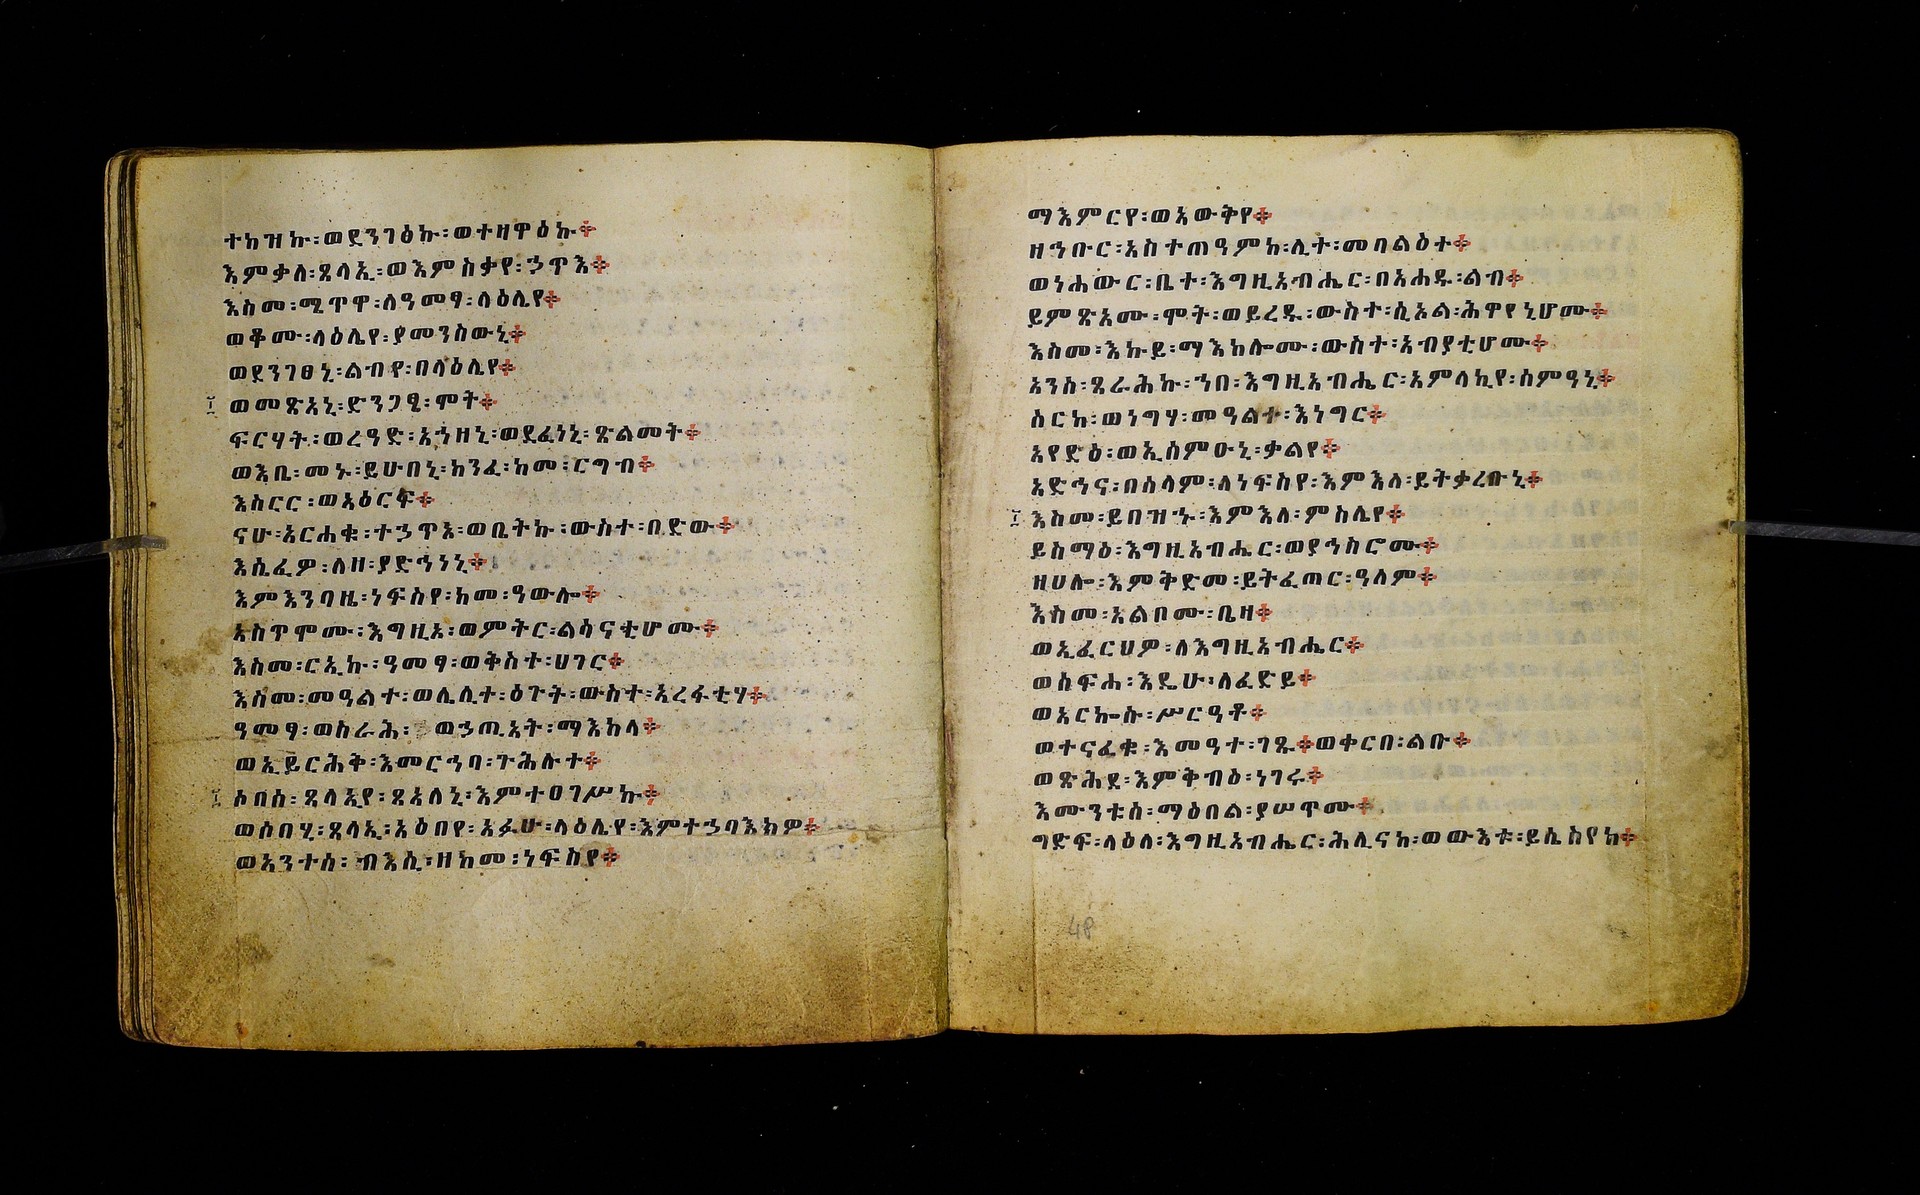 ተከዝኩ፡ወደንገፅኩ፡ወተዛዋዕኩ፨
እምቃለ፡ጸላኢ፡ወእምስቃየ፡ኃጥእ፨
እስመ፡ሚጥዋ፡ለዓመፃ፡ላዕሌየ፨
ወቆሙ፡ላዕሌየ፡ያመንስውኒ፨
ወደንገፀኒ፡ልብየ፡በላዕሌየ፨
ወመጽአኒ፡ድንጋፄ፡ሞት፨
ፍርሃት፡ወረዓድ፡አኀዘኒ፡ወደፈነኒ፡ጽልመት፨
ወእቤ፡መኑ፡ይሁበኒ፡ክንፈ፡ከመ፡ርግብ፨
እስርር፡ወአዕርፍ፨
ናሁ፡አርሐቁ፡ተኃጥእ፡ወቤትኩ፡ውስተ፡በድው፨
እሴፈዎ፡ለዘ፡ያድኅነኒ፨
እምእንባዜ፡ነፍስየ፡ከመ፡ዓውሎ፨
አስጥሞሙ፡እግዚአ፡ወምትር፡ልሳናቲሆሙ፨
እስመ፡ርኢኩ፡ዓመፃ፡ወቅስተ፡ሀገር፨
እስመ፡መዓልተ፡ወሌሊተ፡ዕጉት፡ውስተ፡አረፋቲሃ፨
ዓመፃ፡ወስራሕ፡ወኃጢአት፡ማእከላ፨
ወኢይርሕቅ፡እመርኅባ፡ጕሕሉተ፨
ሶበሰ፡ጸላኢየ፡ጸአለኒ፡እምተዐገሥኩ፨
ወሶበሂ፡ጸላኢ፡አዕበየ፡አፉሁ፡ላዕሌየ፡እምተኃባእክዎ፨
ወአንተሰ፡ብእሲ፡ዘከመ፡ነፍስየ፨
ማእምርየ፡ወአውቅየ፨
ዘኅቡር፡አስተጠዓምከ፡ሊተ፡መባልዕተ፨
ወነሐውር፡ቤተ፡እግዚአብሔር፡በአሐዱ፡ልብ፨
ይምጽአሙ፡ሞት፡ወይረዱ፡ውስተ፡ሲኦል፡ሕያዋኒሆሙ፨
እስመ፡እኩይ፡ማእከሎሙ፡ውስተ፡አብያቲሆሙ፨
አንሰ፡ጸራሕኩ፡ኀበ፡እግዚአብሔር፡አምላኪየ፡ስምዓኒ፨
ሰርከ፡ወነግሃ፡መዓልተ፡እነግር፨
አየድዕ፡ወኢሰምዑኒ፡ቃልየ፨
አድኅና፡በሰላም፡ለነፍስየ፡እምእለ፡ይትቃረቡኒ፨
እስመ፡ይበዝኁ፡እምእለ፡ምስሌየ፨
ይስማዕ፡እግዚአብሔር፡ወያኅስሮሙ፨
ዘሀሎ፡እምቅድመ፡ይትፈጠር፡ዓለም፨
እስመ፡አልቦሙ፡ቤዛ፨
ወኢፈርህዎ፡ለእግዚአብሔር፨
ወሰፍሐ፡እዴሁ፡ለፈድይ፨
ወአርኰሱ፡ሥርዓቶ፨
ወተናፈቁ፡እመዓተ፡ገጹ፨ወቀርበ፡ልቡ፨
ወጽሕደ፡እምቅብዕ፡ነገሩ፨
እሙንቱሰ፡ማዕበል፡ያሠጥሙ፨
ግድፍ፡ላዕለ፡እግዚአብሔር፡ሕሊናከ፡ወውእቱ፡ይሴስየከ፨
48